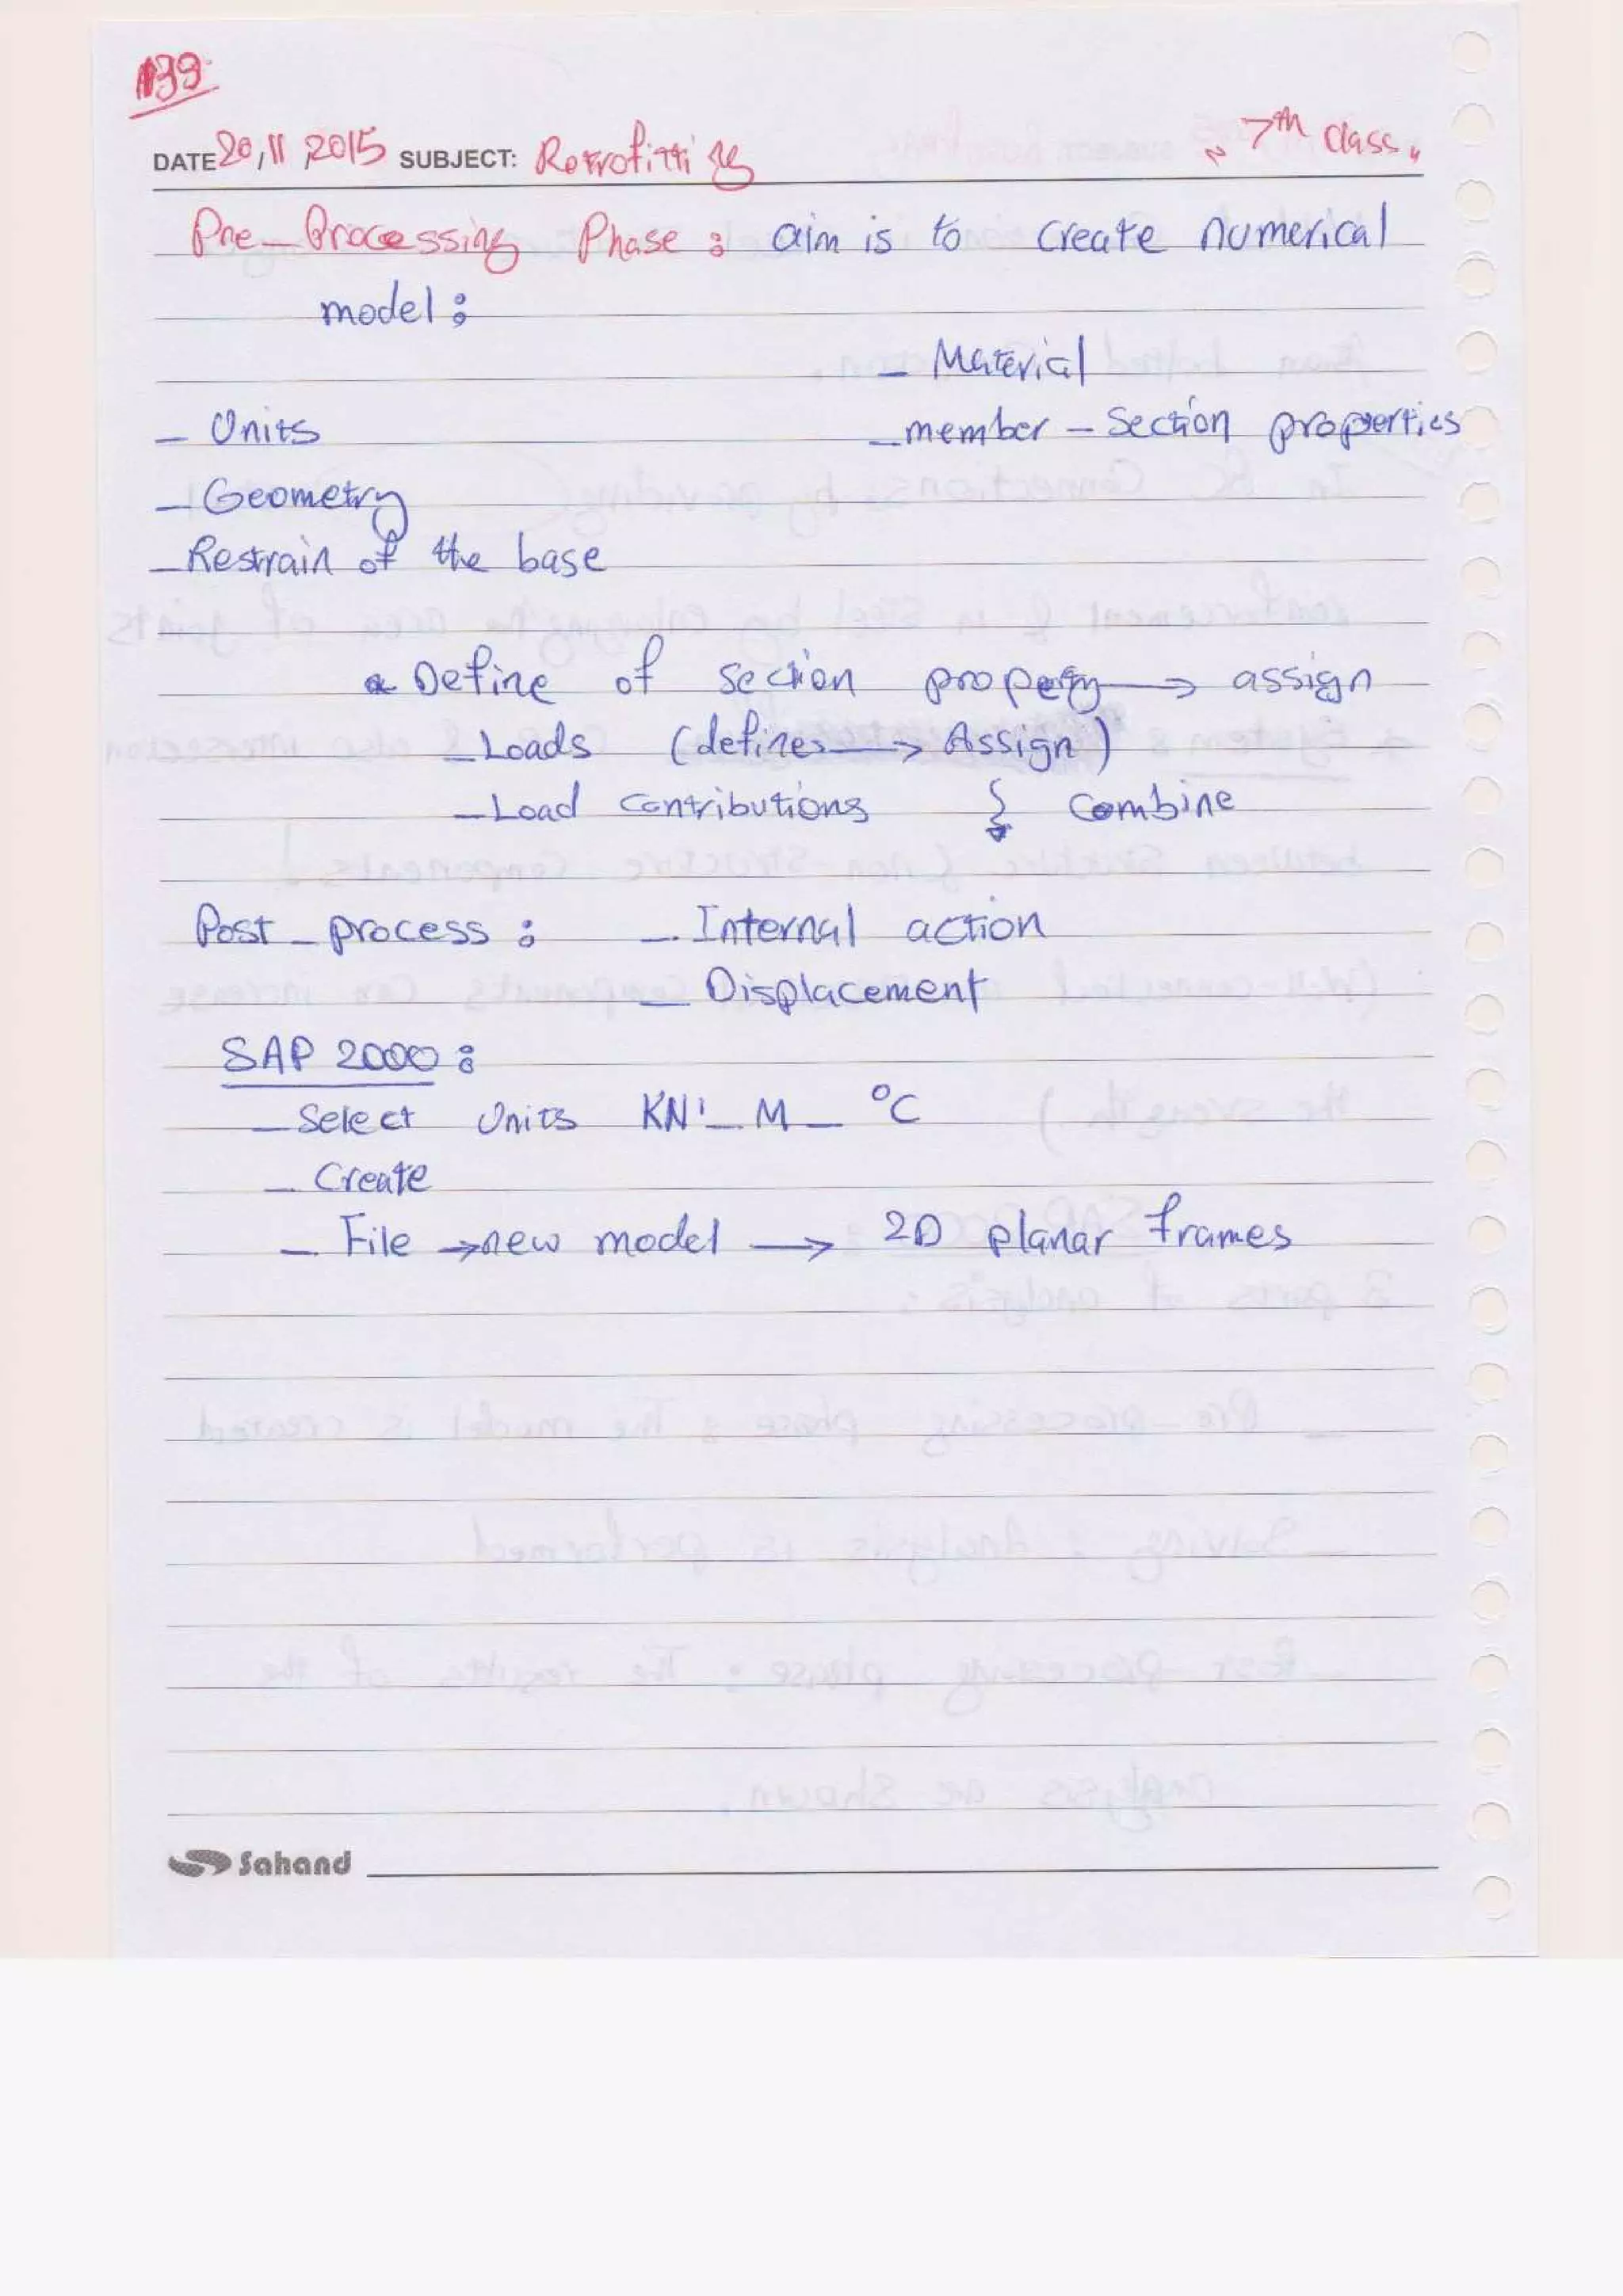 139
DATE 20,11,2015 SUBJECT: Retrofitting "7th class"
Pre-Processing Phase : aim is to create numerical
model :
- Material
- Units
- member - Section properties
- Geometry
- Restrain of the base
Define of section property → assign
- Loads (defines → Assign)
- Load contributions } combine
Post - process : - Internal action
- Displacement
SAP 2000 :
- Select Units KN - M - °C
- Create
- File → new model → 2D planar frames
Sahand